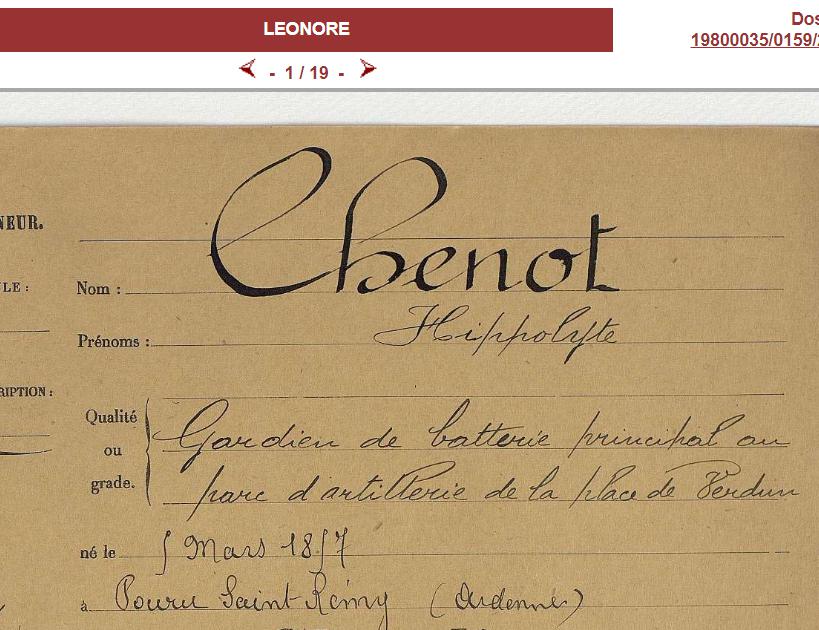 LEONORE
Dos
19800035/0159/2
- 1 / 19 -
NEUR.
Chenot
LE :
Nom :
Hippolyte
Prénoms :
RIPTION :
Qualité
ou
grade.
Gardien de batterie principal au
parc d'artillerie de la place de Verdun
né le 5 Mars 1857
à Pouru Saint-Rémy (Ardennes)